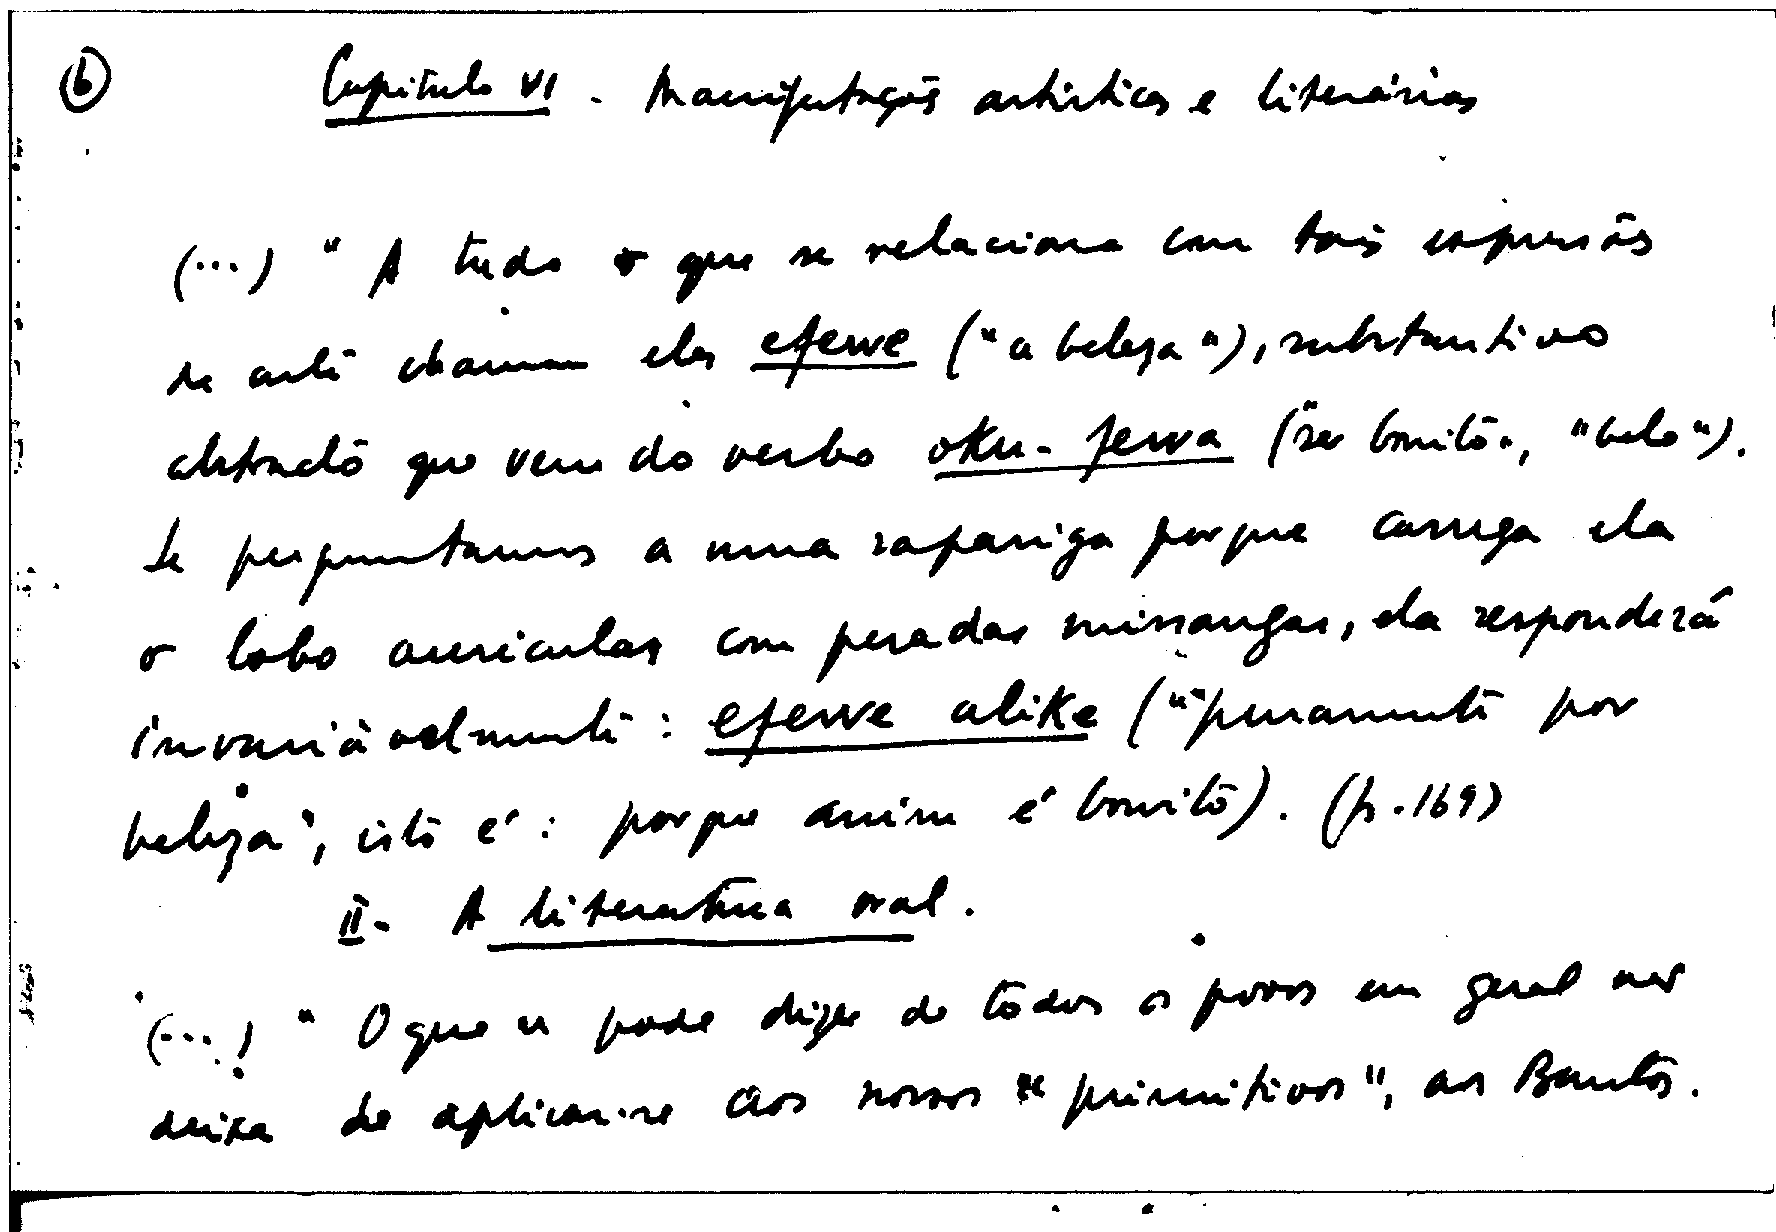 6
Capítulo VI. Manifestações artísticas e literárias
(...) "A tudo o que se relaciona com tais expressões
de arte chamam eles efewe ("a beleza"), substantivo
abstracto que vem do verbo oku-fewa ("ser bonito", "belo").
Se perguntamos a uma rapariga porque carrega ela
o lobo auricular com pesadas missangas, ela responderá
invariàvelmente: efewe alike ("puramente por
beleza", isto é: porque assim é bonito). (p. 169)
II- A literatura oral.
(...) "O que se pode dizer de todos os povos em geral não
deixa de aplicar-se aos nossos "primitivos", aos Bantos.